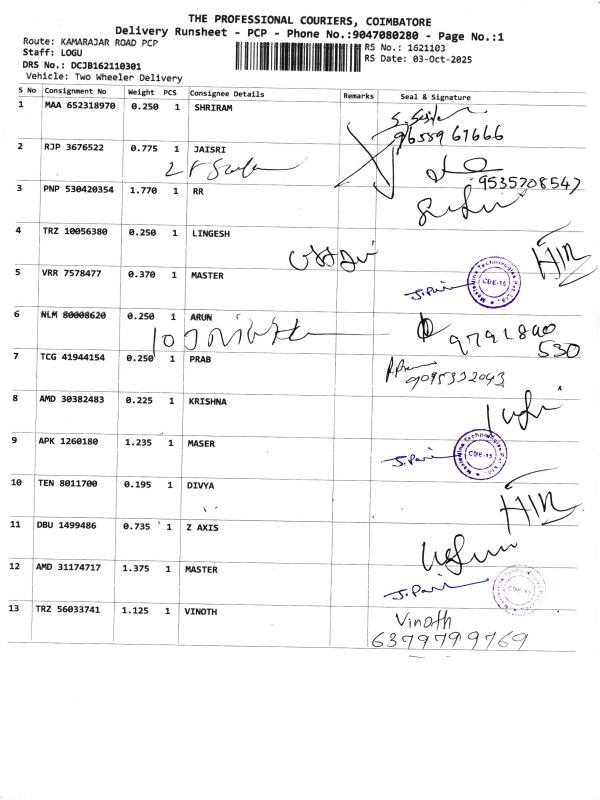 THE PROFESSIONAL COURIERS, COIMBATORE
Delivery Runsheet - PCP - Phone No.:9047080280 - Page No.:1
Route: KAMARAJAR ROAD PCP
Staff: LOGU
DRS No.: DCJB162110301
Vehicle: Two Wheeler Delivery
RS No.: 1621103
RS Date: 03-Oct-2025
S No Consignment No Weight PCS Consignee Details Remarks Seal & Signature
1 MAA 652318970 0.250 1 SHRIRAM
9655967666
2 RJP 3676522 0.775 1 JAISRI
9535708547
3 PNP 530420354 1.770 1 RR
4 TRZ 10056380 0.250 1 LINGESH
HIR
5 VRR 7578477 0.370 1 MASTER
J. Pari
CBE-15
6 NLM 80008620 0.250 1 ARUN
9791840
530
7 TCG 41944154 0.250 1 PRAB
9095332043
8 AMD 30382483 0.225 1 KRISHNA
9 APK 1260180 1.235 1 MASER
J. Pari
CBE-15
10 TEN 8011700 0.195 1 DIVYA
HIR
11 DBU 1499486 0.735 1 Z AXIS
12 AMD 31174717 1.375 1 MASTER
J. Pari
13 TRZ 56033741 1.125 1 VINOTH
Vinoth
6379799769